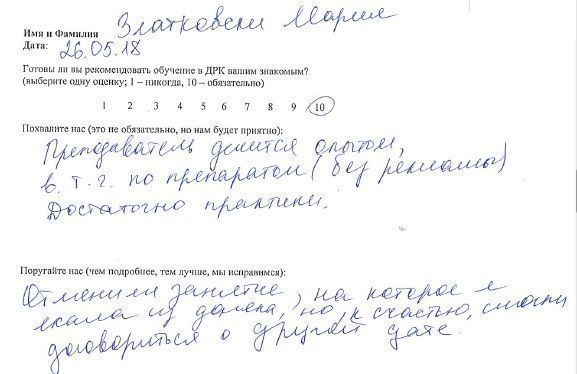 Имя и Фамилия Златковски Мария
Дата: 26.05.18
Готовы ли вы рекомендовать обучение в ДРК вашим знакомым?
(выберите одну оценку; 1 – никогда, 10 – обязательно)
1 2 3 4 5 6 7 8 9 10
Похвалите нас (это не обязательно, но нам будет приятно):
Преподаватель делится опытом,
в т.г. по препаратом (без рекламы)
Достаточно практики.
Поругайте нас (чем подробнее, тем лучше, мы исправимся):
Отменили занятие, на которое я
ехала из далека, но, к счастью, смогли
договориться о другой дате.